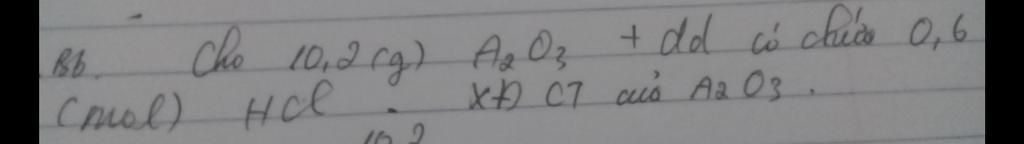 B6. Cho 10,2 (g) A2O3 + dd có chứa 0,6
(mol) HCl. XĐ CT của A2O3.